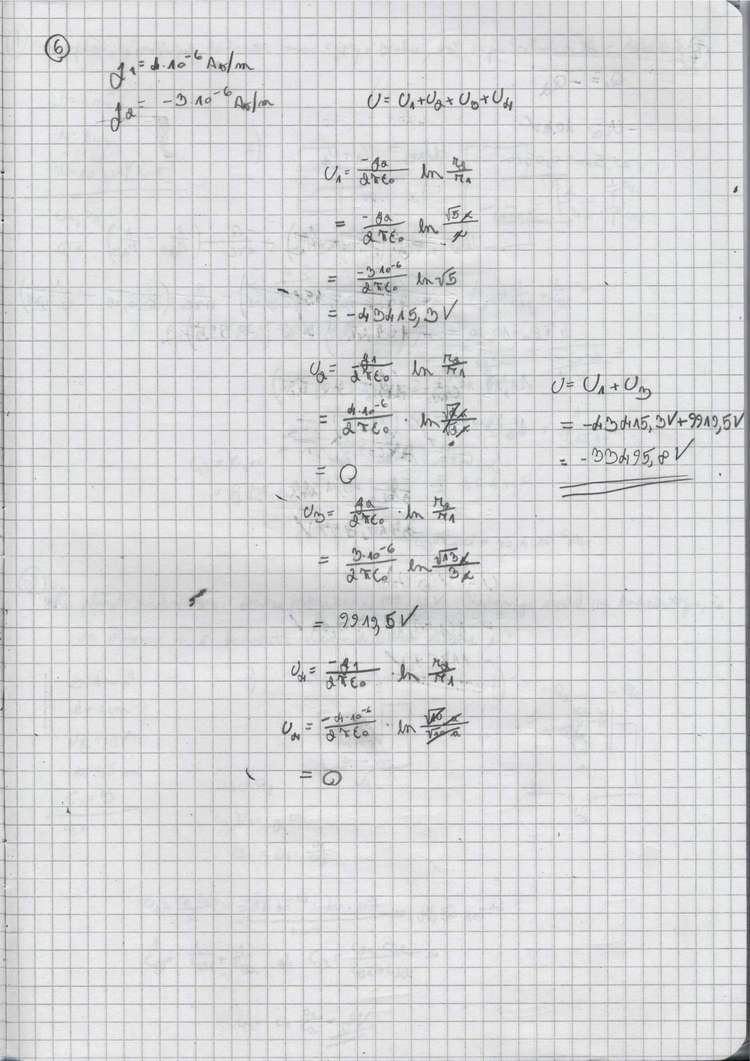 6
q1 = 4·10⁻⁶ As/m
q2 = -3·10⁻⁶ As/m
U = U1 + U2 + U3 + U4
U1 = -q2/2πε0 ln r2/r1
= -q2/2πε0 ln √5a/a
= -3·10⁻⁶/2πε0 ln √5
= -43415,3V
U2 = q1/2πε0 ln r2/r1
= 4·10⁻⁶/2πε0 · ln
= 0
U3 = q2/2πε0 · ln r2/r1
= 3·10⁻⁶/2πε0 ln √13a/3a
= 9919,5V
U4 = -q1/2πε0 · ln r2/r1
U4 = -4·10⁻⁶/2πε0 · ln √10a/√10a
= 0
U = U1 + U3
= -43415,3V + 9919,5V
= -33495,8V